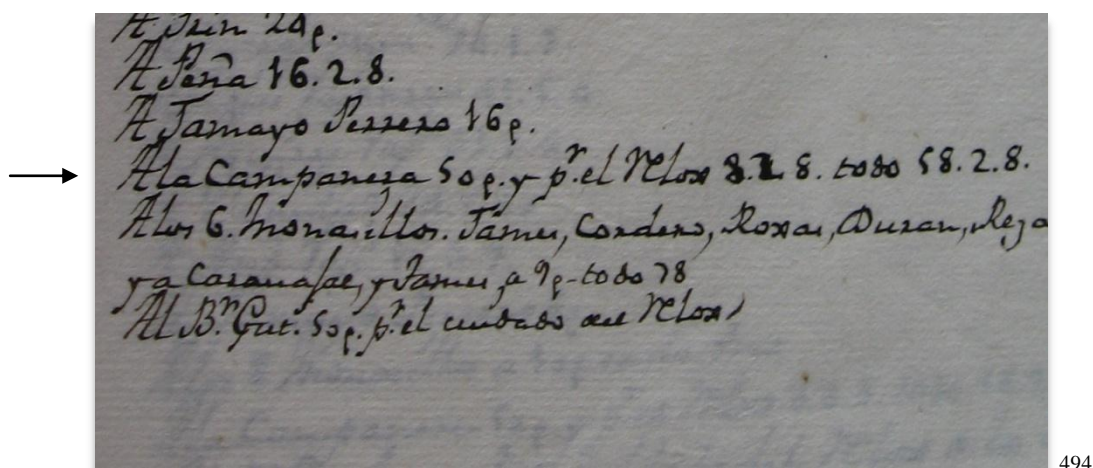 A Peña 16.2.8.
A Tamayo Perrero 16p.
A la Campanera 50p. y pr. el Relox 8.2.8. todo 58.2.8.
A los 6. monasillos. Jamu, Cordero, Roxas, Duran,
y a Casauajae, y Jamu, a 9p- todo 78
Al Br. Gut. 50p. pr. el cuidado del Relox
494